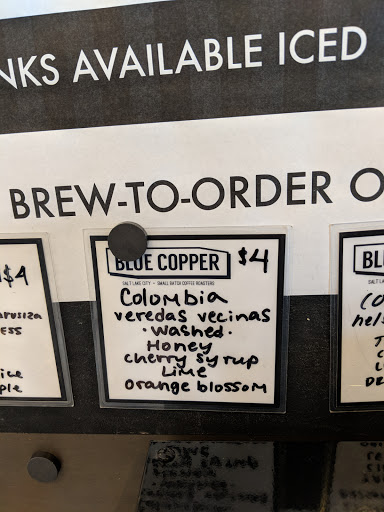 NKS AVAILABLE ICED
BREW-TO-ORDER O
$4
ESS
ple
BLUE COPPER $4
SALT LAKE CITY - SMALL BATCH COFFEE ROASTERS
Colombia
veredas vecinas
·washed·
Honey
cherry syrup
Lime
orange blossom
BL
SALT L
CO
hel